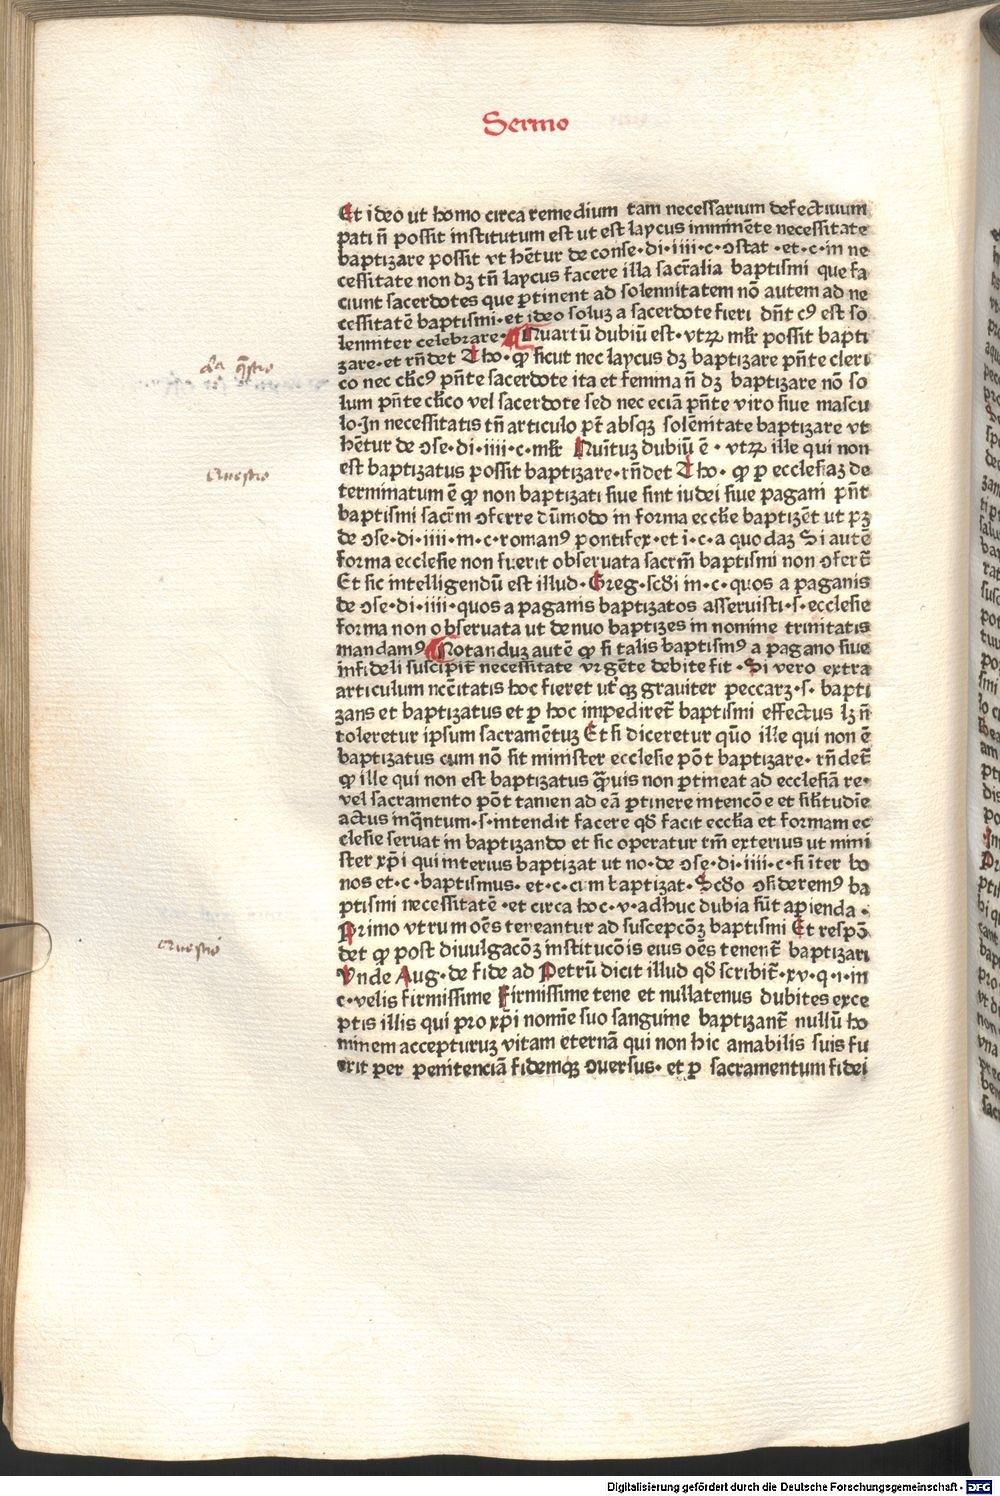 Sermo
Et ideo ut homo circa remedium tam necessarium defectiuum
pati n̄ possit institutum est ut est laycus imminēte necessitate
baptizare possit vt hētur de conse·di·iiii·c·ↄstat·et·c·in ne
cessitate non dꝫ tn̄ laycus facere illa sacr̄alia baptismi que fa
ciunt sacerdotes que ꝑtinent ad solennitatem nō autem ad ne
cessitatē baptismi·et ideo soluꝫ a sacerdote fieri dn̄t cꝰ est so
lenniter celebrare· Quartū dubiū est·vtꝝ mlr̄ possit bapti
zare·et rn̄det Tho·ꝙ sicut nec laycus dꝫ baptizare pn̄te cleri
co nec cl̄icꝰ pn̄te sacerdote ita et femina n̄ dꝫ baptizare nō so
lum pn̄te cl̄ico vel sacerdote sed nec eciā pn̄te viro siue mascu
lo·In necessitatis tn̄ articulo pt̄ absqꝫ solēnitate baptizare vt
hētur de ↄse·di·iiii·c·mlr̄ Quītuꝫ dubiū ē·vtꝝ ille qui non
est baptizatus possit baptizare·rn̄det Tho·ꝙ ꝑ ecclesiaꝫ de
terminatum ē ꝙ non baptizati siue sint iudei siue pagani pn̄t
baptismi sacr̄m ↄferre dūmodo in forma eccl̄ie baptizēt ut pꝫ
de ↄse·di·iiii·m·c·romanꝰ pontifex·et i·c·a quodaꝫ Si autē
forma ecclesie non fuerit obseruata sacrm̄ baptismi non ↄfert̄
Et sic intelligendū est illud·Greg·scd̄i in·c·quos a paganis
de ↄse·di·iiii·quos a paganis baptizatos asseruisti·s·ecclesie
forma non obseruata ut denuo baptizes in nomine trinitatis
mandamꝰ Notanduꝫ autē ꝙ si talis baptismꝰ a pagano siue
infideli suscipit̄ necessitate vrgēte debite fit·Si vero extra
articulum nccēitatis hoc fieret ut̓qꝫ grauiter peccarꝫ·s·bapti
zans et baptizatus et ꝑ hoc impediret̄ baptismi effectus lꝫ n̄
toleretur ipsum sacramētuꝫ Et si diceretur quō ille qui non ē
baptizatus cum nō sit minister ecclesie pōt baptizare·rn̄det̄
ꝙ ille qui non est baptizatus qᷓuis non ꝑtineat ad ecclesiā re·
vel sacramento pōt tamen ad eā ꝑtinere intencōe et sil̄itudīe
actus inqᷓntum·s·intendit facere qd̄ facit eccl̄ia et formam ec
clesie seruat in baptizando et sic operatur tm̄ exterius ut mini
ster xp̄i qui interius baptizat ut no·de ↄse·di·iiii·c·si īter bo
nos et·c·baptismus·et·c·cum baptizat·Scd̄o ↄsideremꝰ ba
ptismi necessitatē·et circa hoc·v·adhuc dubia sūt aꝑienda·
Primo vtrum oēs teneantur ad suscepcōꝫ baptismi Et respō
det ꝙ post diuulgacōꝫ institucōis eius oēs tenent̄ baptizari
Vnde Aug·de fide ad Petrū dicit illud qd̄ scribit̄·xv·q·i·in
c·velis firmissime Firmissime tene et nullatenus dubites exce
ptis illis qui pro xp̄i nomīe suo sanguine baptizant̄ nullū ho
minem accepturuꝫ vitam eternā qui non hic amabilis suis fu
erit per penitenciā fidemqꝫ ↄuersus·et ꝑ sacramentum fidei
4a q̄stio
Questio
Questio
Digitalisierung gefördert durch die Deutsche Forschungsgemeinschaft - DFG